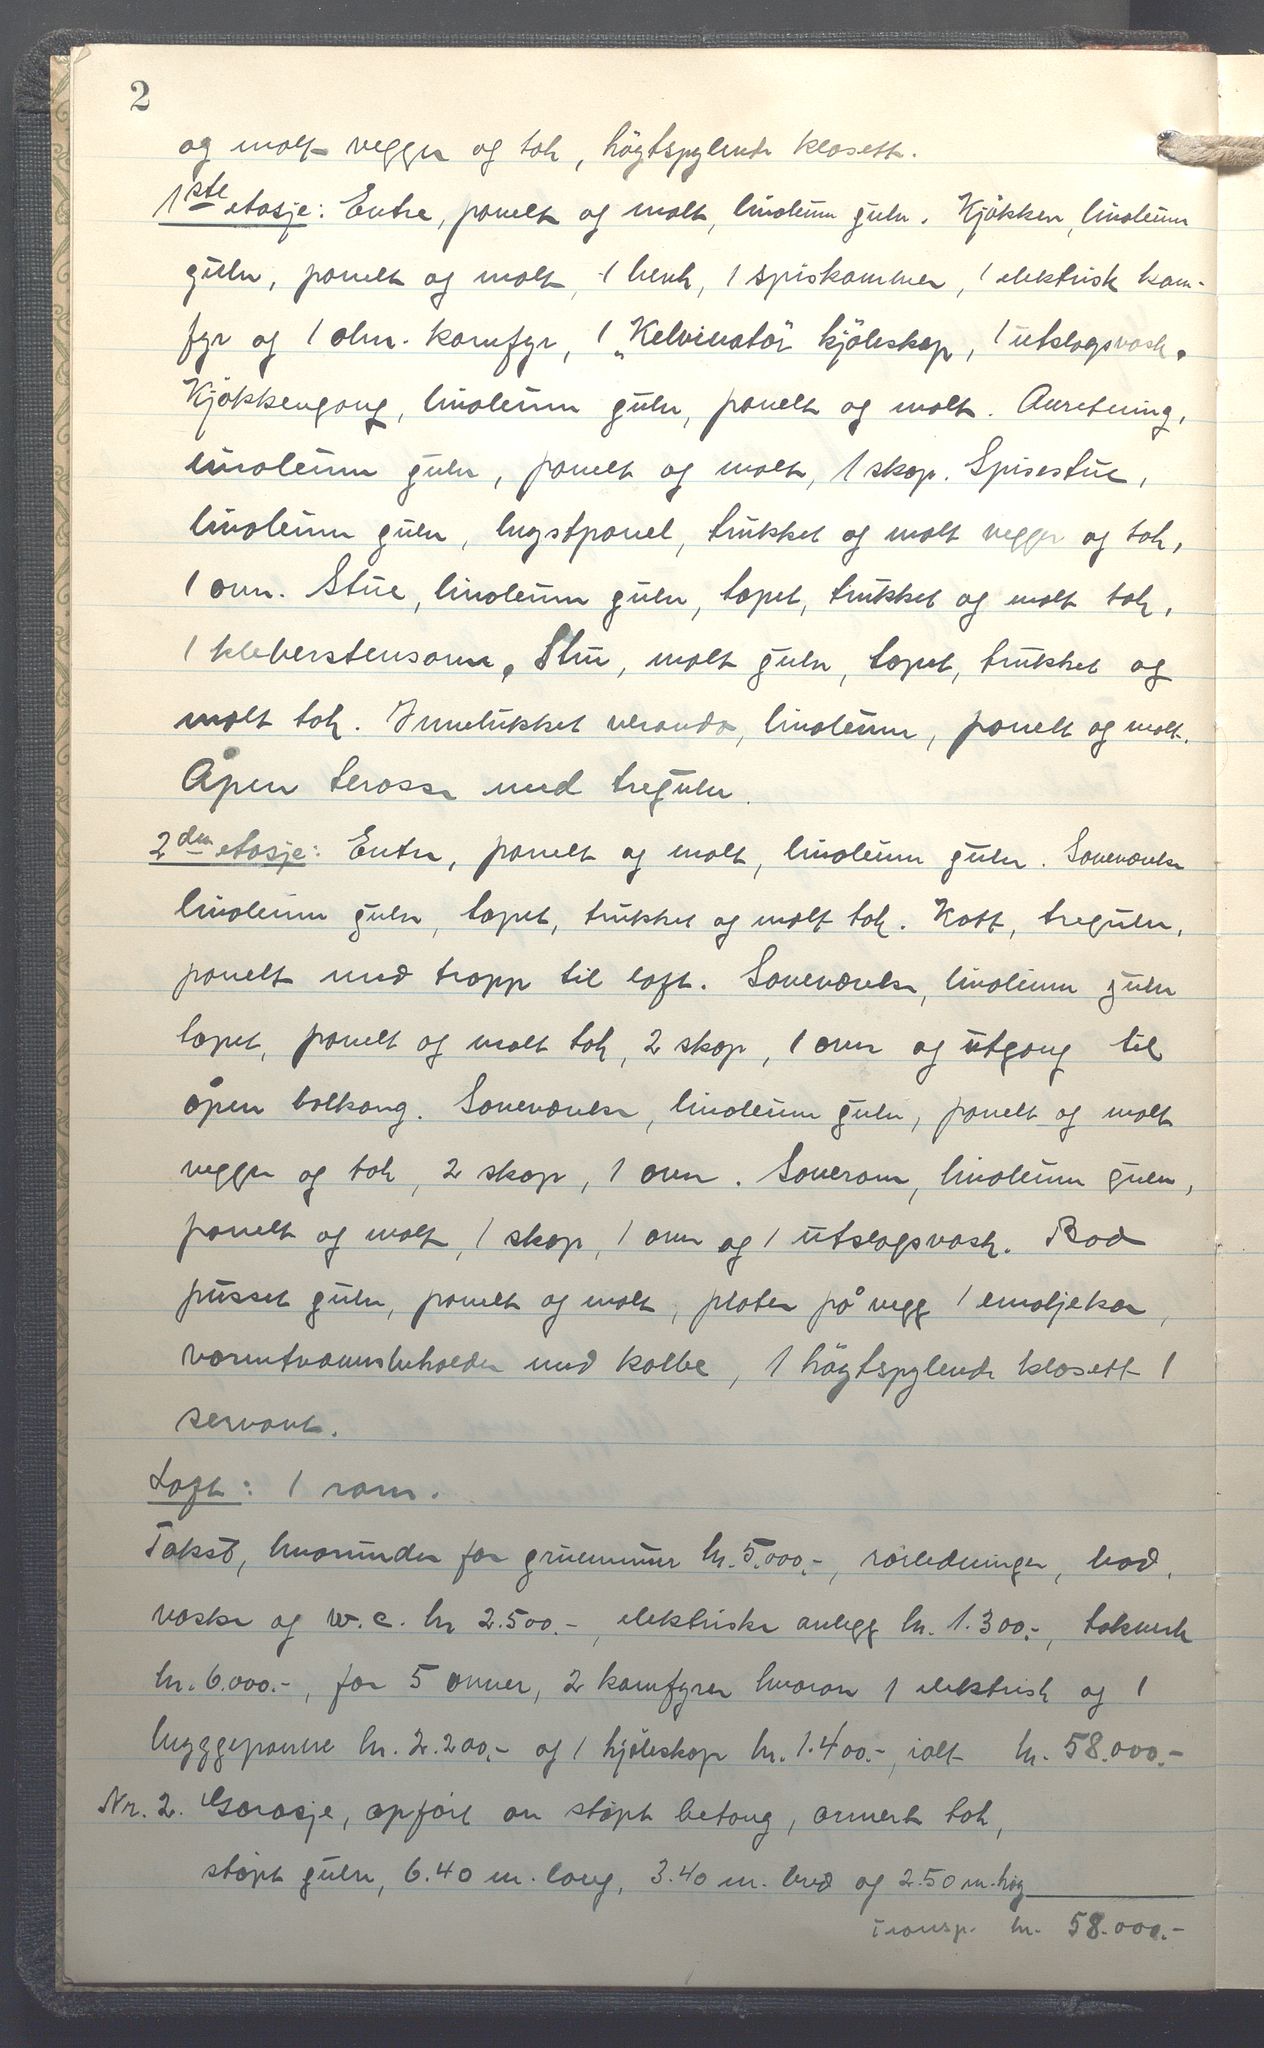 2
og malt vegger og tak, högtspylende klosett.
1ste etasje: Entre, panelt og malt, linoleum gulv. Kjökken, linoleum
gulv, panelt og malt, 1 benk, 1 spiskammer, 1 elektrisk kom-
fyr og 1 alm. komfyr, 1 „Kelvinator" kjöleskap, 1 utslagsvask.
Kjökkengang, linoleum gulv, panelt og malt. Anretning,
linoleum gulv, panelt og malt, 1 skap. Spisestue,
linoleum gulv, brystpanel, trukket og malt vegger og tak,
1 ovn. Stue, linoleum gulv, tapet, trukket og malt tak,
1 kleberstensovn, Stue, malt gulv, tapet, trukket og
malt tak. Innelukket veranda, linoleum, panelt og malt.
Åpen terasse med tregulv.
2den etasje: Entre, panelt og malt, linoleum gulv. Soveværelse
linoleum gulv, tapet, trukket og malt tak. Kott, tregulv,
panelt med trapp til loft. Soveværelse, linoleum gulv
tapet, panelt og malt tak, 2 skap, 1 ovn og utgang til
åpen balkong. Soveværelse, linoleum gulv, panelt og malt
vegger og tak, 2 skap, 1 ovn. Soverom, linoleum gulv,
panelt og malt, 1 skap, 1 ovn og 1 utslagsvask. Bad
pusset gulv, panelt og malt, plater på vegg 1 emaljekar,
varmtvannsbeholder med kolbe, 1 högtspylende klosett 1
servant.
Loft: 1 rom.
Takst, hvorunder for grunnmur kr. 5.000.-, rörledninger, bad,
vasker og w.c. kr 2.500.-, elektriske anlegg kr. 1.300.-, takverk
kr. 6.000.-, for 5 ovner, 2 komfyrer hvorav 1 elektrisk og 1
bryggepanne kr. 2.200.- og 1 kjöleskap kr. 1.400.-, ialt kr. 58.000.-
Nr. 2. Garasje, opfört av stöpt betong, armert tak,
stöpt gulv, 6.40 m. lang, 3.40 m. bred og 2.50 m. höy
Transp. kr. 58.000.-